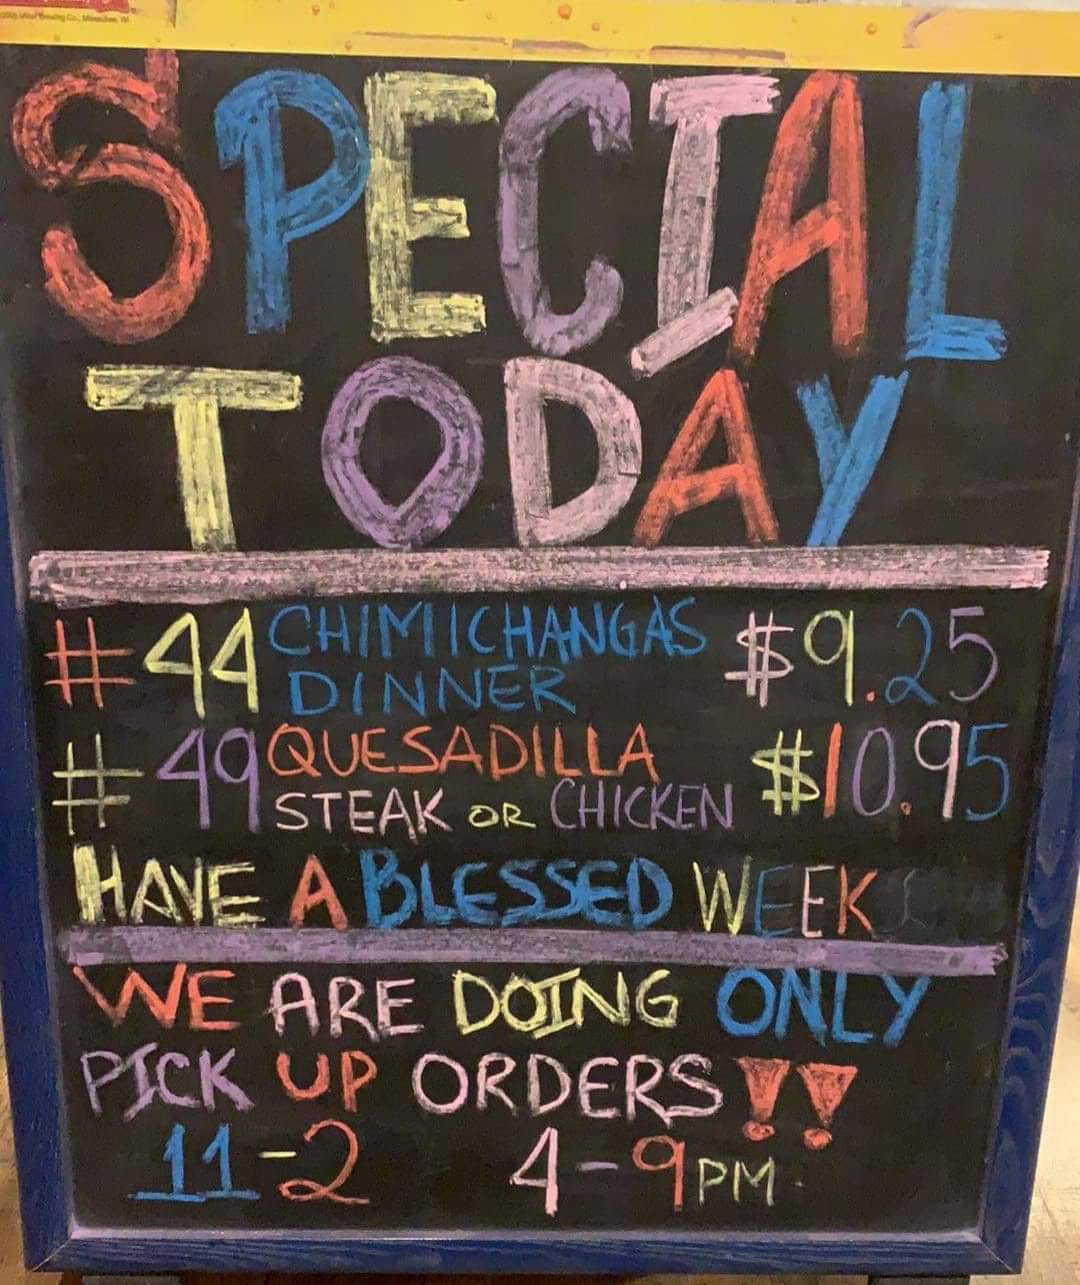 Brewing Co., Milwaukee, WI
SPECIAL
TODAY
#44 CHIMICHANGAS DINNER $9.25
#49 QUESADILLA STEAK OR CHICKEN $10.95
HAVE A BLESSED WEEK
WE ARE DOING ONLY
PICK UP ORDERS!!
11-2 4-9PM